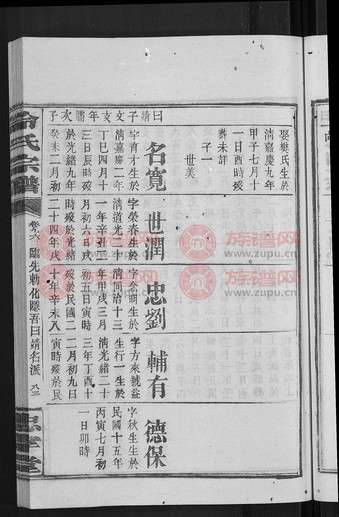 娶樊氏生於
清嘉慶九年
甲子七月十
一日酉時歿
葬未詳
子一
世美
名寬
字育才生於
清嘉慶二年
丁巳四月十
三日辰時歿
於光緒九年
癸未二月初
世潤
字榮春生於
清道光二十
一年辛丑三
月初六日戌
時歿於光緒
二十四年戌
忠劉
字念明生於
清同治十三
年甲戌三月
初五日寅時
歿於民國二
十年辛未八
輔有
字方來號益
生行一生於
清光緒二十
三年丁酉十
二月初九日
寅時歿於民
德保
字秋生生於
民國十五年
丙寅七月初
一日卯時
氏宗譜
卷六 臨先勅化隱吾曰靖名派 八二
忠孝堂
族谱网
www.zupu.cn